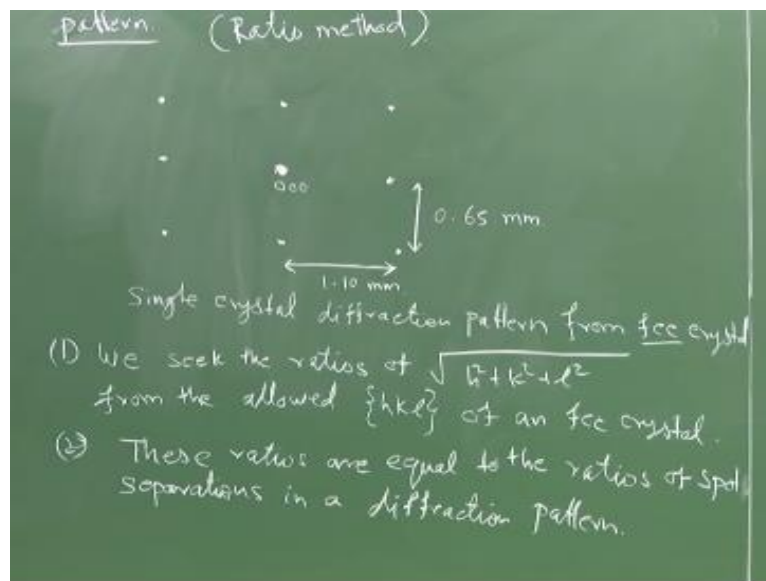 pattern. (Ratio method)
000
0.65 mm
1.10 mm
Single crystal diffraction pattern from fcc crystal
(1) We seek the ratios of √h²+k²+l²
from the allowed {hkl} of an fcc crystal.
(2) These ratios are equal to the ratios of spot
separations in a diffraction pattern.